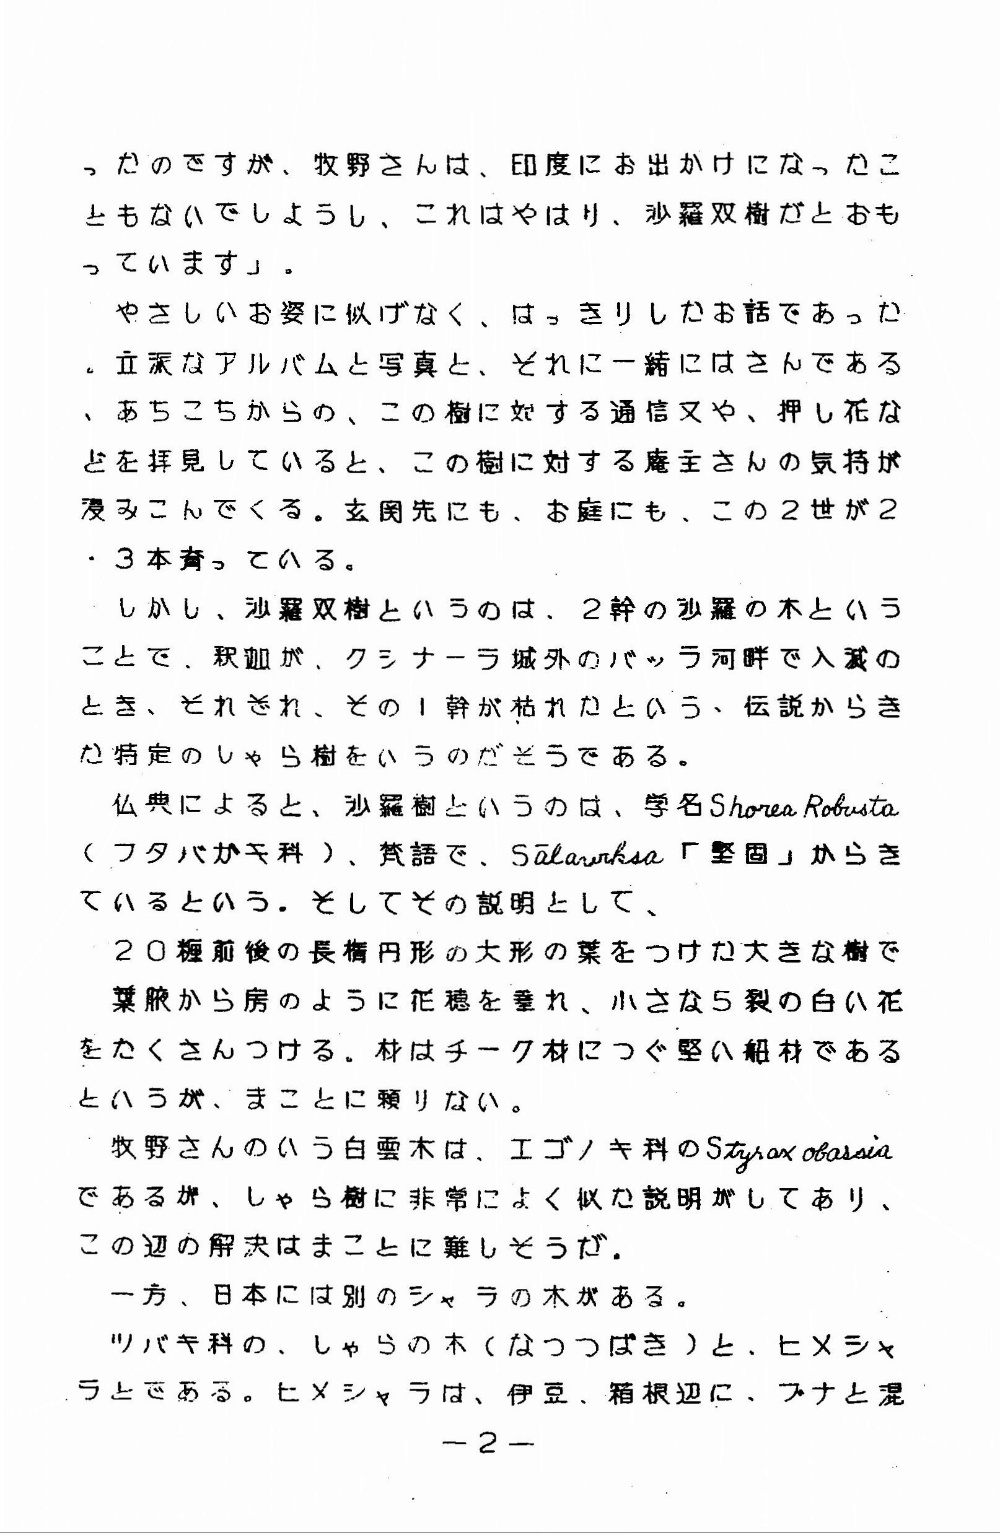 ったのですが、牧野さんは、印度にお出かけになったこ
ともないでしようし、これはやはり、沙羅双樹だとおも
っています」。
やさしいお姿に似げなく、はっきりしたお話であった
。立派なアルバムと写真と、それに一緒にはさんである
、あちこちからの、この樹に対する通信文や、押し花な
どを拝見していると、この樹に対する庵主さんの気持が
浸みこんでくる。玄関先にも、お庭にも、この2世が2
・3本育っている。
しかし、沙羅双樹というのは、2幹の沙羅の木という
ことで、釈迦が、クシナーラ城外のバッラ河畔で入滅の
とき、それぞれ、その1幹が枯れたという、伝説からき
た特定のしゃら樹をいうのだそうである。
仏典によると、沙羅樹というのは、学名Shorea Robusta
(フタバガキ科)、梵語で、Sālavrksa「堅固」からき
ているという。そしてその説明として、
20糎前後の長楕円形の大形の葉をつけた大きな樹で
葉腋から房のように花穂を垂れ、小さな5裂の白い花
をたくさんつける。材はチーク材につぐ堅い船材である
というが、まことに頼りない。
牧野さんのいう白雲木は、エゴノキ科のStyrax obassia
であるが、しゃら樹に非常によく似た説明がしてあり、
この辺の解決はまことに難しそうだ。
一方、日本には別のシャラの木がある。
ツバキ科の、しゃらの木(なつつばき)と、ヒメシャ
ラとである。ヒメシャラは、伊豆、箱根辺に、ブナと混
—2—